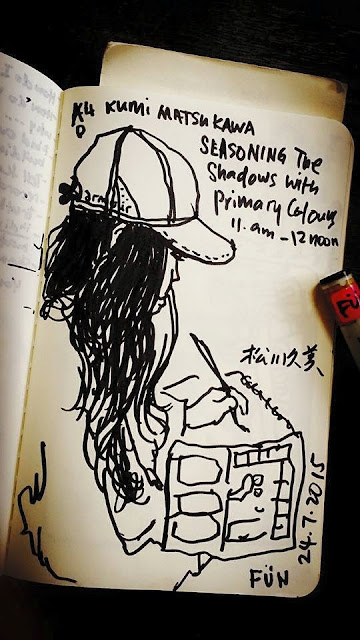 KUMI MATSUKAWA
SEASONING The
Shadows with
primary Colours
11.am - 12 noon
松川久美
24.7.2015
FÜN
FÜN